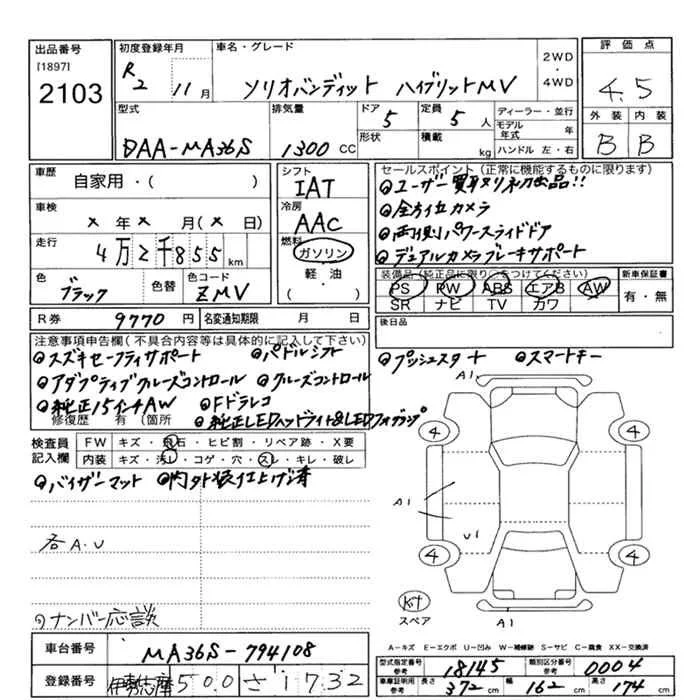 出品番号
[1897]
2103
初度登録年月
R2 11月
車名・グレード
ソリオバンディット ハイブリットMV
2WD・4WD
評価点
4.5
外装 内装
B B
型式
DAA-MA36S
排気量
1300 CC
ドア
5
形状
定員
5人
積載
kg
ディーラー・並行
モデル年式 年
ハンドル 左・右
車歴
自家用・( )
車検
×年×月(×日)
走行
4万2千855km
色
ブラック
色替
色コード
ZMV
シフト
IAT
冷房
AAC
燃料
ガソリン
軽・油
・( )
セールスポイント(正常に機能するものに限ります)
◎ユーザー買取り初出品!!
◎全方位カメラ
◎両側パワースライドドア
◎デュアルカメラブレーキサポート
装備品(純正品に限り○をつけてください)
PS PW ABS エアB AW
SR ナビ TV カワ
新車保証書
有・無
R券 9770円
名変通知期限 月 日
後日品
注意事項申告欄(不具合内容等は具体的に記入して下さい)
◎スズキセーフティサポート ◎パドルシフト
◎アダプティブクルーズコントロール ◎クルーズコントロール
◎純正15インチAW ◎Fドラレコ
修復歴 有(箇所
◎純正LEDヘッドライト&LEDフォグランプ
◎プッシュスタート ◎スマートキー
検査員記入欄
FW キズ・飛石・ヒビ割・リペア跡・X要
内装 キズ・汚レ・コゲ・穴・スレ・キレ・破レ
◎バイザーマット ◎内外装仕上げ済
各A.U
◎ナンバー応談
A1
4
4
A1
U1
4
4
Kit
スペア
A1
A-キズ E-エクボ U-凹み W-補修跡 S-サビ C-腐食 XX-交換済
車台番号 MA36S-794108
登録番号 伊勢志摩500さ1732
型式指定番号 参考 18145
類別区分番号 参考 0004
車庫証明用 参考 長さ 372cm 幅 162cm 高さ 174cm